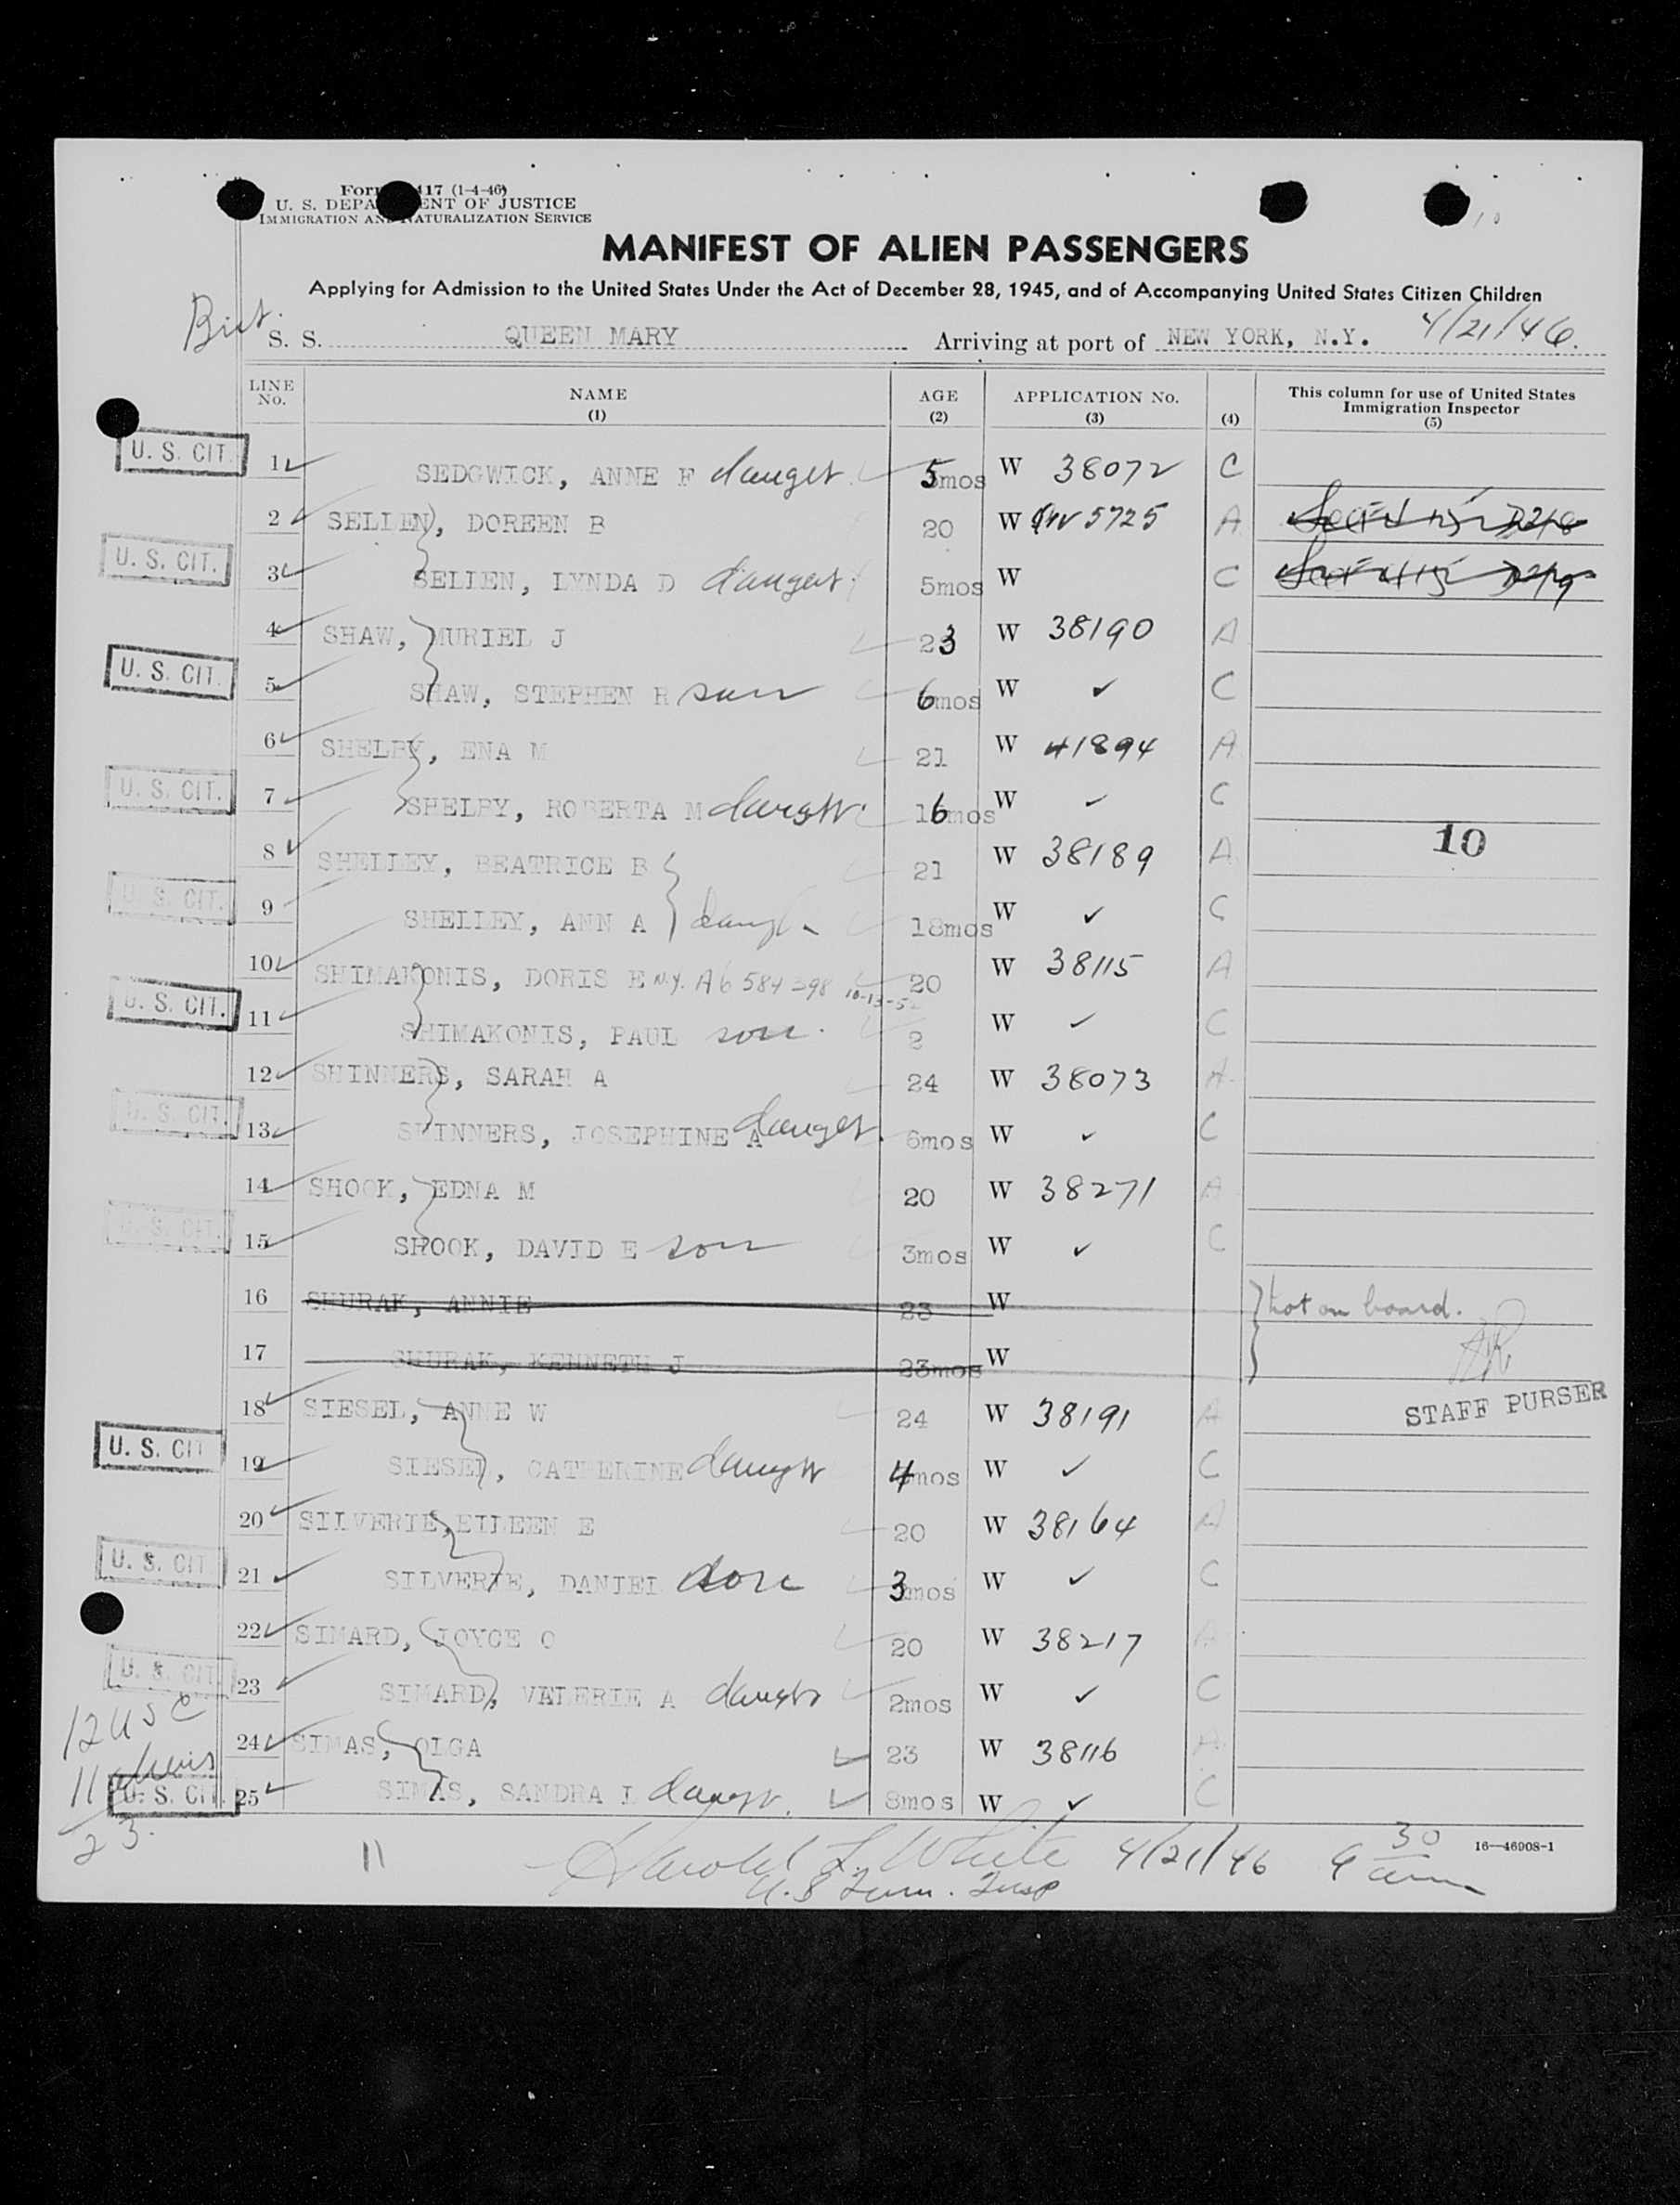 Form 417 (1-4-46)
U. S. DEPARTMENT OF JUSTICE
IMMIGRATION AND NATURALIZATION SERVICE
10
MANIFEST OF ALIEN PASSENGERS
Applying for Admission to the United States Under the Act of December 28, 1945, and of Accompanying United States Citizen Children
Brit.
S. S. QUEEN MARY Arriving at port of NEW YORK, N.Y. 4/21/46.
LINE No. NAME (1) AGE (2) APPLICATION No. (3) (4) This column for use of United States Immigration Inspector (5)
U. S. CIT. 1 SEDGWICK, ANNE F daughter 5mos W 38072 C
2 SELLEN, DOREEN B 20 W 5725 A
U. S. CIT. 3 SELLEN, LYNDA D daughter 5mos W C
4 SHAW, MURIEL J 23 W 38190 A
U. S. CIT. 5 SHAW, STEPHEN R son 6mos W ✓ C
6 SHELBY, ENA M 21 W 41894 A
U. S. CIT. 7 SHELBY, ROBERTA M daughter 16mos W ✓ C
10
8 SHELLEY, BEATRICE B 21 W 38189 A
U. S. CIT. 9 SHELLEY, ANN A daughter 18mos W ✓ C
10 SHIMAKONIS, DORIS E N.Y. A6 584 398 10-13-52 20 W 38115 A
U. S. CIT. 11 SHIMAKONIS, PAUL son. 2 W ✓ C
12 SHINNERS, SARAH A 24 W 38073 A
U. S. CIT. 13 SHINNERS, JOSEPHINE A daughter 6mos W ✓ C
14 SHOOK, EDNA M 20 W 38271 A
U. S. CIT. 15 SHOOK, DAVID E son 3mos W ✓ C
16 SHURAK, ANNIE 23 W not on board.
17 SHURAK, KENNETH J 23mos W
STAFF PURSER
18 SIESEL, ANNE W 24 W 38191 A
U. S. CIT 19 SIESEL, CATHERINE daughter 4mos W ✓ C
20 SILVERIE, EILEEN E 20 W 38164 A
U. S. CIT 21 SILVERIE, DANIEL son 3mos W ✓ C
22 SIMARD, JOYCE O 20 W 38217 A
U. S. CIT. 23 SIMARD, VALERIE A daughter 2mos W ✓ C
12 USC
24 SIMAS, OLGA 23 W 38116 A
11 aliens
U. S. CIT. 25 SIMAS, SANDRA L daughter. 8mos W ✓ C
23.
11 Harold L. White 4/21/46 9 30 am 16—46908-1
U.S Imm. Insp